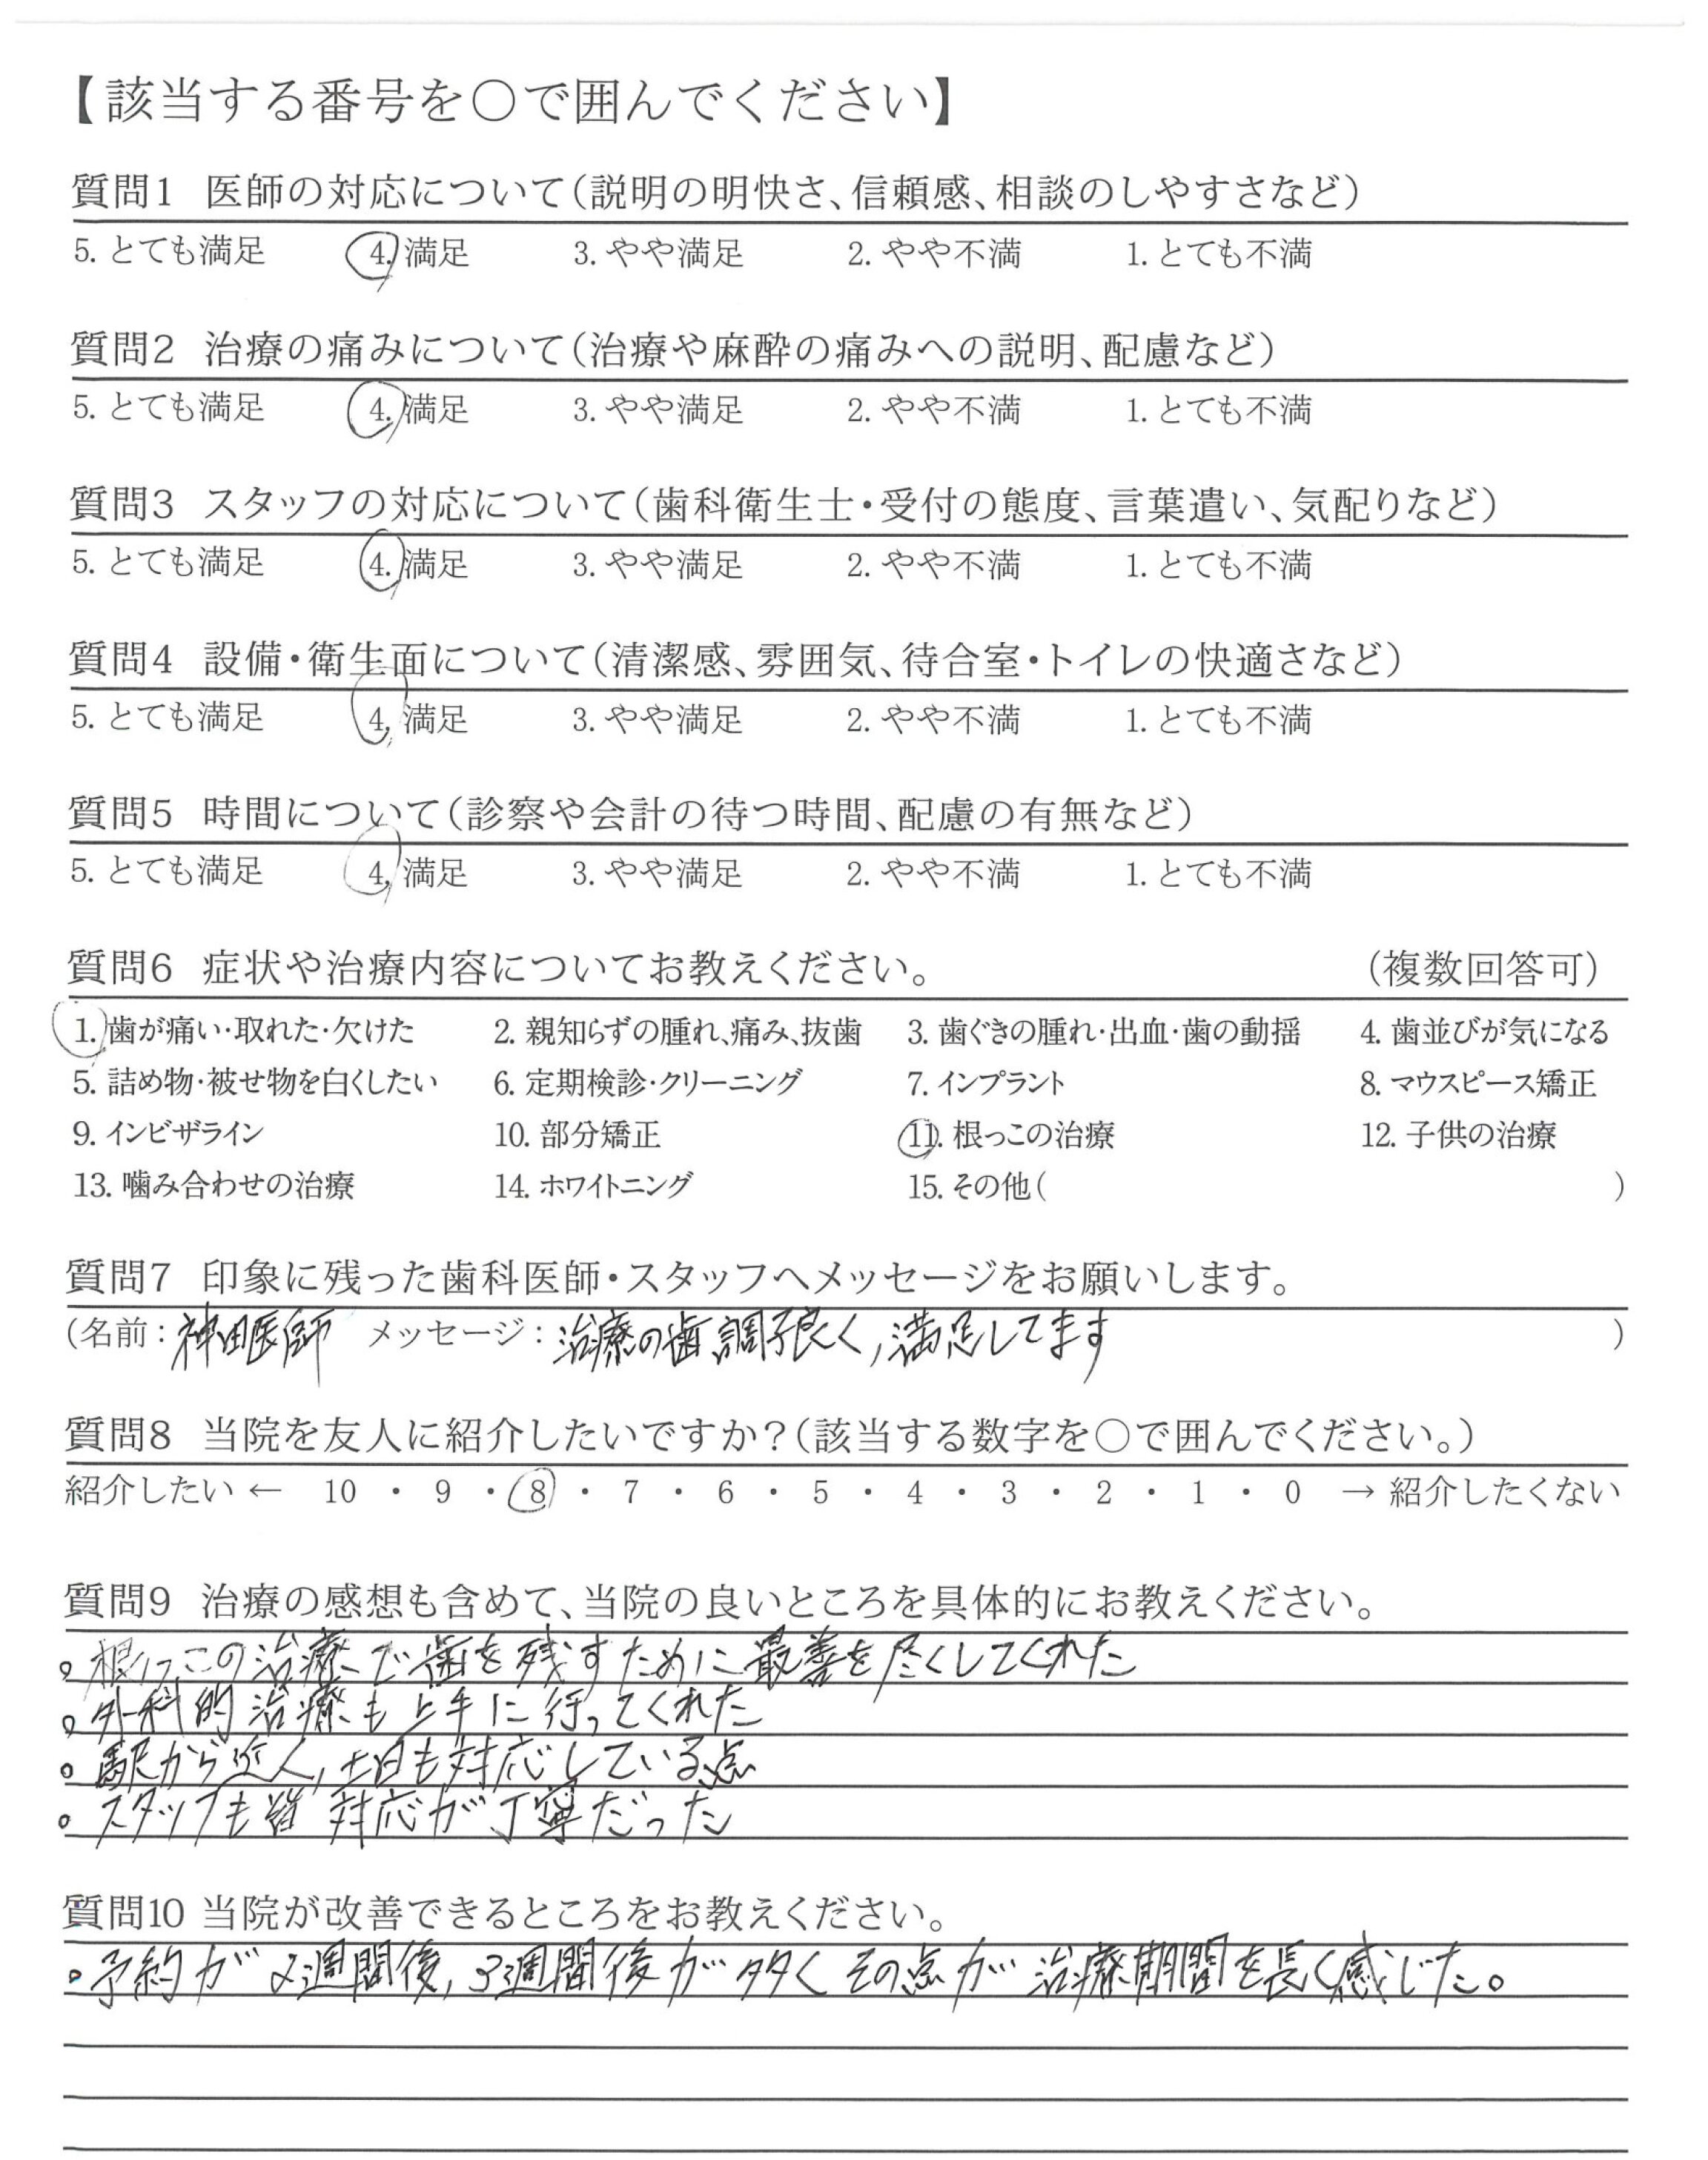 【該当する番号を○で囲んでください】
質問1 医師の対応について(説明の明快さ、信頼感、相談のしやすさなど)
5. とても満足 4. 満足 3. やや満足 2. やや不満 1. とても不満
質問2 治療の痛みについて(治療や麻酔の痛みへの説明、配慮など)
5. とても満足 4. 満足 3. やや満足 2. やや不満 1. とても不満
質問3 スタッフの対応について(歯科衛生士・受付の態度、言葉遣い、気配りなど)
5. とても満足 4. 満足 3. やや満足 2. やや不満 1. とても不満
質問4 設備・衛生面について(清潔感、雰囲気、待合室・トイレの快適さなど)
5. とても満足 4. 満足 3. やや満足 2. やや不満 1. とても不満
質問5 時間について(診察や会計の待つ時間、配慮の有無など)
5. とても満足 4. 満足 3. やや満足 2. やや不満 1. とても不満
質問6 症状や治療内容についてお教えください。 (複数回答可)
1. 歯が痛い・取れた・欠けた 2. 親知らずの腫れ、痛み、抜歯 3. 歯ぐきの腫れ・出血・歯の動揺 4. 歯並びが気になる
5. 詰め物・被せ物を白くしたい 6. 定期検診・クリーニング 7. インプラント 8. マウスピース矯正
9. インビザライン 10. 部分矯正 11. 根っこの治療 12. 子供の治療
13. 噛み合わせの治療 14. ホワイトニング 15. その他( )
質問7 印象に残った歯科医師・スタッフへメッセージをお願いします。
(名前: 神田医師 メッセージ: 治療の歯調子良く,満足してます )
質問8 当院を友人に紹介したいですか?(該当する数字を○で囲んでください。)
紹介したい ← 10 ・ 9 ・ 8 ・ 7 ・ 6 ・ 5 ・ 4 ・ 3 ・ 2 ・ 1 ・ 0 → 紹介したくない
質問9 治療の感想も含めて、当院の良いところを具体的にお教えください。
。根っこの治療で歯を残すために最善を尽くしてくれた
。外科的治療も上手に行ってくれた
。駅から近く,土日も対応している点
。スタッフも皆対応が丁寧だった
質問10 当院が改善できるところをお教えください。
。予約が2週間後,3週間後が多くその点が治療期間を長く感じた。